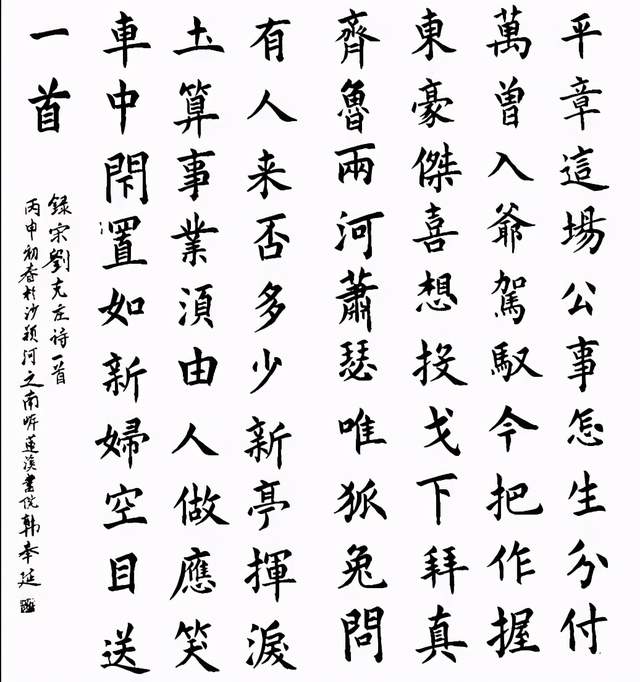 平章這場公事怎生分付
萬曾入爺駕馭今把作握
東豪傑喜想投戈下拜真
齊魯兩河蕭瑟唯狐兔問
有人来否多少新亭揮淚
圡算事業湏由人做應笑
車中閇置如新婦空目送
一首
録宋劉克庄诗一首
丙申初春於沙颍河之南岸蓮溪書院韩奉延